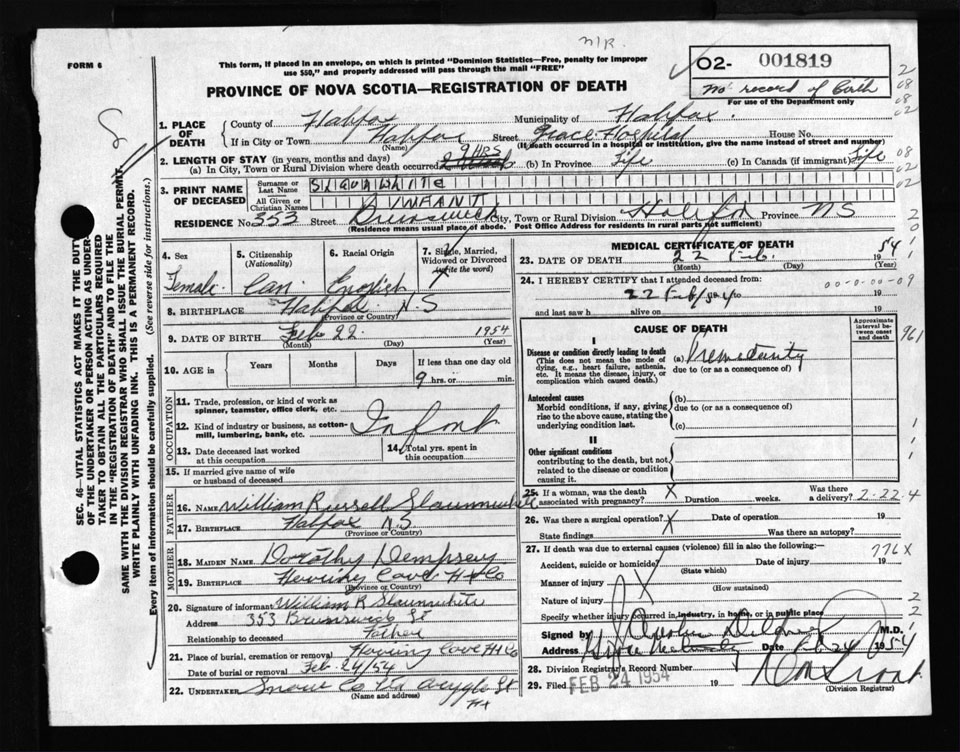 N/R.
FORM 6
This form, if placed in an envelope, on which is printed "Dominion Statistics—Free, penalty for improper
use $50," and properly addressed will pass through the mail "FREE"
PROVINCE OF NOVA SCOTIA—REGISTRATION OF DEATH
02- 001819
No record of Birth
For use of the Department only
1. PLACE OF DEATH
County of Halifax Municipality of Halifax.
If in City or Town Halifax Street Grace Hospital House No.
(Name) (If death occurred in a hospital or institution, give the name instead of street and number)
2. LENGTH OF STAY (in years, months and days)
(a) In City, Town or Rural Division where death occurred 9 HRS (b) In Province Life (c) In Canada (if immigrant) Life
3. PRINT NAME OF DECEASED
Surname or Last Name SLAUNWHITE
All Given or Christian Names INFANT
RESIDENCE No. 353 Street Brunswick City, Town or Rural Division Halifax Province NS
(Residence means usual place of abode. Post Office Address for residents in rural parts not sufficient)
4. Sex
Female
5. Citizenship (Nationality)
Can.
6. Racial Origin
English
7. Single, Married, Widowed or Divorced (Write the word)
8. BIRTHPLACE Halifax N.S
(Province or Country)
9. DATE OF BIRTH Feb 22 1954
(Month) (Day) (Year)
10. AGE in Years Months Days If less than one day old
9 hrs. or min.
OCCUPATION
11. Trade, profession, or kind of work as spinner, teamster, office clerk, etc.
12. Kind of industry or business, as cotton-mill, lumbering, bank, etc.
Infant
13. Date deceased last worked at this occupation
14. Total yrs. spent in this occupation
15. If married give name of wife or husband of deceased
FATHER
16. Name William Russell Slaunwhite
17. Birthplace Halifax N.S
(Province or Country)
MOTHER
18. MAIDEN NAME Dorothy Dempsey
19. BIRTHPLACE Herring Cove Hx Co
(Province or Country)
20. Signature of informant William R Slaunwhite
Address 353 Brunswick St
Relationship to deceased Father
21. Place of burial, cremation or removal Herring Cove Hx Co
Date of burial or removal Feb. 24/54
22. UNDERTAKER Snow Co Ltd Argyle St
(Name and address) Hx
MEDICAL CERTIFICATE OF DEATH
23. DATE OF DEATH 22 Feb. 1954
(Month) (Day) (Year)
24. I HEREBY CERTIFY that I attended deceased from
22 Feb/54 to 19
00-0-00-09
and last saw h alive on 19
CAUSE OF DEATH
Approximate interval between onset and death
I
Disease or condition directly leading to death
(This does not mean the mode of dying, e.g., heart failure, asthenia, etc. It means the disease, injury, or complication which caused death.)
(a) Prematurity
due to (or as a consequence of)
Antecedent causes
Morbid conditions, if any, giving rise to the above cause, stating the underlying condition last.
(b)
due to (or as a consequence of)
(c)
II
Other significant conditions
contributing to the death, but not related to the disease or condition causing it.
25. If a woman, was the death associated with pregnancy? X Duration weeks. Was there a delivery? 2-22.4
26. Was there a surgical operation? X Date of operation 19
State findings Was there an autopsy?
27. If death was due to external causes (violence) fill in also the following:— 776X
Accident, suicide or homicide? Date of injury 19
(State which)
Manner of injury X
(How sustained)
Nature of injury
Specify whether injury occurred in industry, in home, or in public place
Signed by M.D.
Address Date Feb 24 1954
28. Division Registrar's Record Number
29. Filed FEB 24 1954 19
(Division Registrar)
2
08
08
02
08
02
02
2
0
1
1
961
1
1
2
2
1
SEC. 46—VITAL STATISTICS ACT MAKES IT THE DUTY
OF THE UNDERTAKER OR PERSON ACTING AS UNDERTAKER
TO OBTAIN ALL THE PARTICULARS REQUIRED
IN THE "REGISTRATION OF DEATH" AND TO FILE THE
SAME WITH THE DIVISION REGISTRAR WHO SHALL ISSUE THE BURIAL PERMIT.
WRITE PLAINLY WITH UNFADING INK. THIS IS A PERMANENT RECORD.
Every item of information should be carefully supplied. (See reverse side for instructions.)